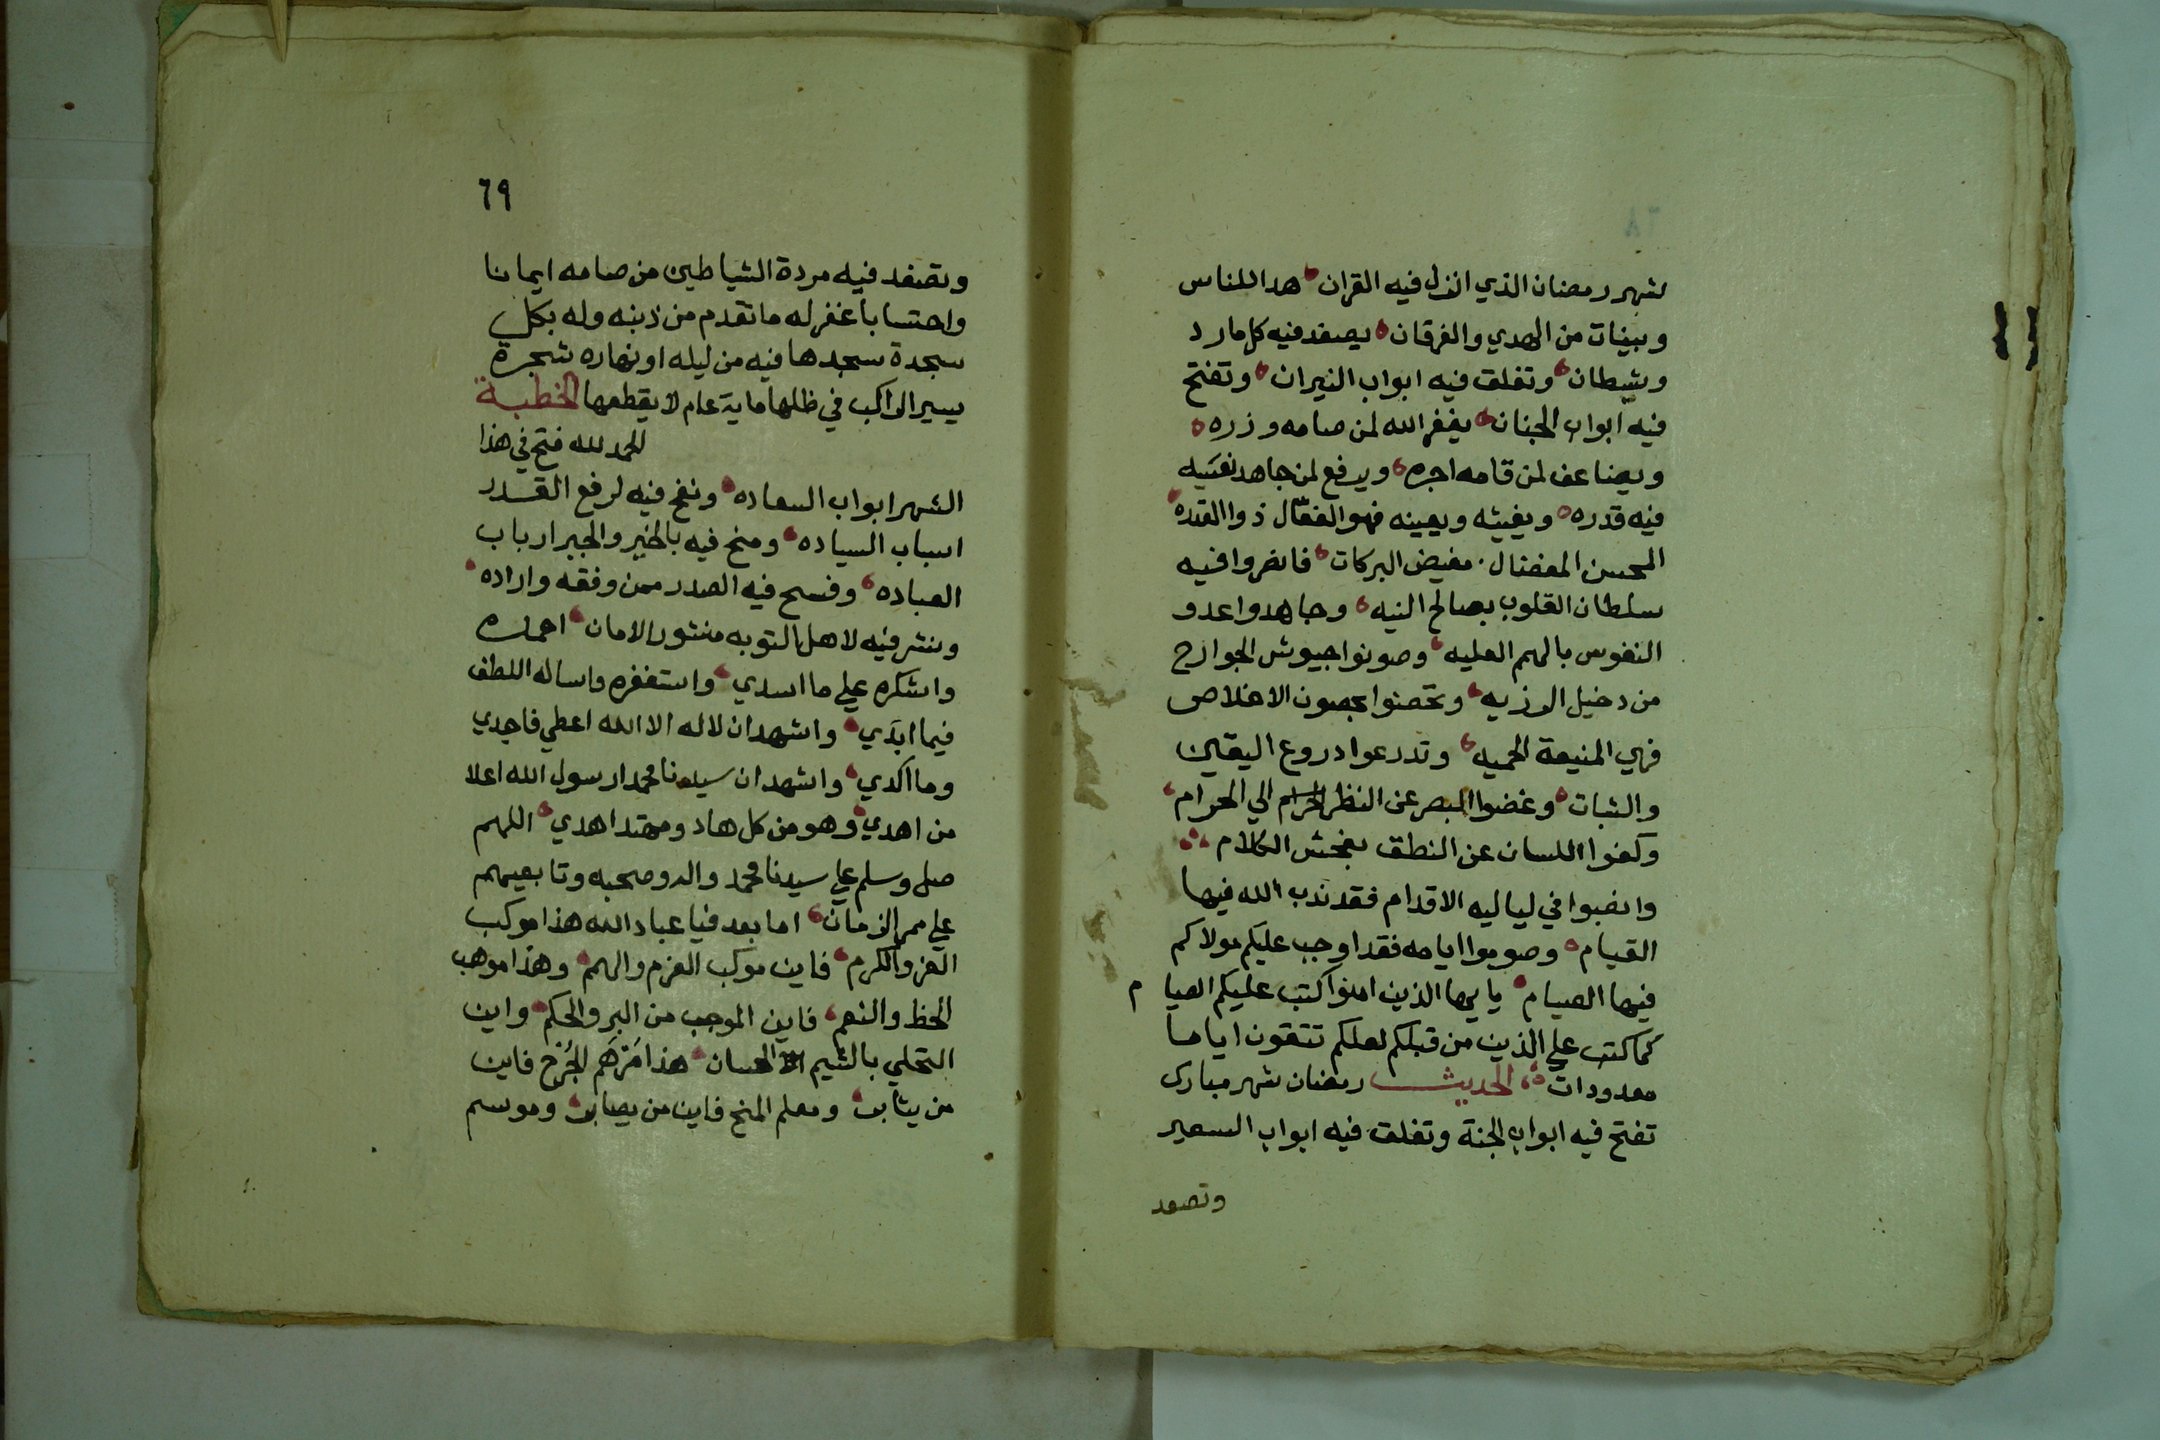 ٦٨
شهر رمضان الذي انزل فيه القران هدا للناس
وبينات من الهدي والفرقان يصفد فيه كل مارد
وشيطان وتغلق فيه ابواب النيران وتفتح
فيه ابواب الجنان يغفر الله لمن صامه وزره
ويضاعف لمن قامه اجره ويرفع لمن جاهد نفسه
فيه قدره ويغيثه ويعينه فهو الفعّال ذوا القدره
المحسن المفضال مفيض البركات فانفروا فيه
سلطان القلوب بصالح النيه وجاهدوا عدو
النفوس بالهمم العليه وصونوا جيوش الجوارح
من دخيل الرزيه وتحصنوا بحصون الاخلاص
فهي المنيعة الحميه وتدرعوا دروع اليقين
والثبات وغضوا البصر عن النظر الحرام الي الحرام
وكفوا اللسان عن النطق بفحش الكلام
وانصبوا في لياليه الاقدام فقد ندب الله فيها
القيام وصوموا ايامه فقد اوجب عليكم مولاكم
فيها الصيام يايها الذين امنوا كتب عليكم الصيام
كما كتب علي الذين من قبلكم لعلكم تتقون اياما
معدودات الحديث رمضان شهر مبارك
تفتح فيه ابواب الجنة وتغلق فيه ابواب السعير
وتصفد
٦٩
وتصفد فيه مردة الشياطين من صامه ايمانا
واحتسابا غفر له ما تقدم من ذنبه وله بكل
سجدة سجدها فيه من ليله او نهاره شجرة
يسير الراكب في ظلها ماية عام لا يقطعها الخطبة
الحمد لله فتح في هذا
الشهر ابواب السعاده ونفح فيه لرفع القدر
اسباب السياده ومنح فيه بالخير والجبر ارباب
العباده وفسح فيه الصدر ممن وفقه واراده
ونشر فيه لاهل التوبه منشور الامان احمده
واشكره علي ما اسدي واستغفره واساله اللطف
فيما ابدَي واشهد ان لا اله الا الله اعطي فاجدي
وما اكدي واشهد ان سيدنا محمدا رسول الله اعلا
من اهدي وهو من كل هاد ومهتد اهدي اللهم
صل وسلم علي سيدنا محمد واله وصحبه وتابعيهم
علي ممر الزمان اما بعد فيا عباد الله هذا موكب
العز والكرم فاين موكب العزم والهمم وهذا موهب
الحظ والنعم فاين الموجب من البر والحكم واين
التحلي بالشيم الحسان هذا مَرْهَم الجُرْح فاين
من يثاب ومعلم المنح فاين من يصاب وموسم